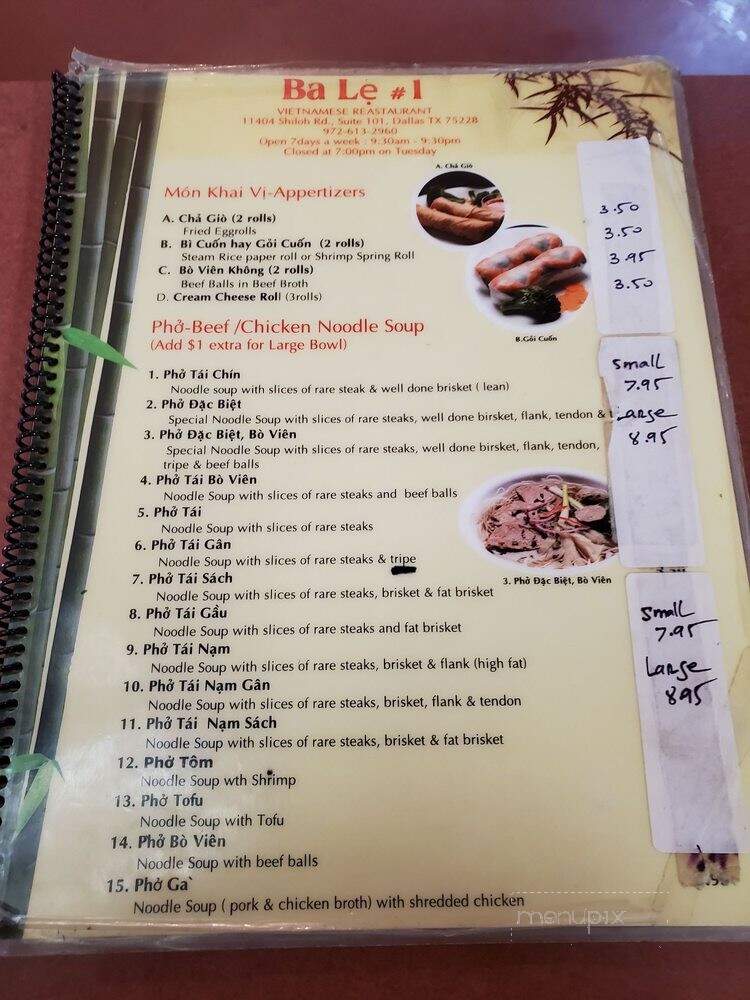 Ba Lẹ #1
VIETNAMESE REASTAURANT
11404 Shiloh Rd., Suite 101, Dallas TX 75228
972-613-2960
Open 7days a week : 9:30am - 9:30pm
Closed at 7:00pm on Tuesday
A. Chả Giò
Món Khai Vị-Appertizers
A. Chả Giò (2 rolls)
Fried Eggrolls
3.50
B. Bì Cuốn hay Gỏi Cuốn (2 rolls)
Steam Rice paper roll or Shrimp Spring Roll
3.50
C. Bò Viên Không (2 rolls)
Beef Balls in Beef Broth
3.95
D. Cream Cheese Roll (3rolls)
3.50
B.Gỏi Cuốn
Phở-Beef /Chicken Noodle Soup
(Add $1 extra for Large Bowl)
small
7.95
Large
8.95
1. Phở Tái Chín
Noodle soup with slices of rare steak & well done brisket ( lean)
2. Phở Đặc Biệt
Special Noodle Soup with slices of rare steaks, well done birsket, flank, tendon &
3. Phở Đặc Biệt, Bò Viên
Special Noodle Soup with slices of rare steaks, well done birsket, flank, tendon,
tripe & beef balls
4. Phở Tái Bò Viên
Noodle Soup with slices of rare steaks and beef balls
5. Phở Tái
Noodle Soup with slices of rare steaks
6. Phở Tái Gân
Noodle Soup with slices of rare steaks & tripe
7. Phở Tái Sách
Noodle Soup with slices of rare steaks, brisket & fat brisket
3. Phở Đặc Biệt, Bò Viên
small
7.95
Large
895
8. Phở Tái Gầu
Noodle Soup with slices of rare steaks and fat brisket
9. Phở Tái Nạm
Noodle Soup with slices of rare steaks, brisket & flank (high fat)
10. Phở Tái Nạm Gân
Noodle Soup with slices of rare steaks, brisket, flank & tendon
11. Phở Tái Nạm Sách
Noodle Soup with slices of rare steaks, brisket & fat brisket
12. Phở Tôm
Noodle Soup wth Shrimp
13. Phở Tofu
Noodle Soup with Tofu
14. Phở Bò Viên
Noodle Soup with beef balls
15. Phở Ga`
Noodle Soup ( pork & chicken broth) with shredded chicken
menupix